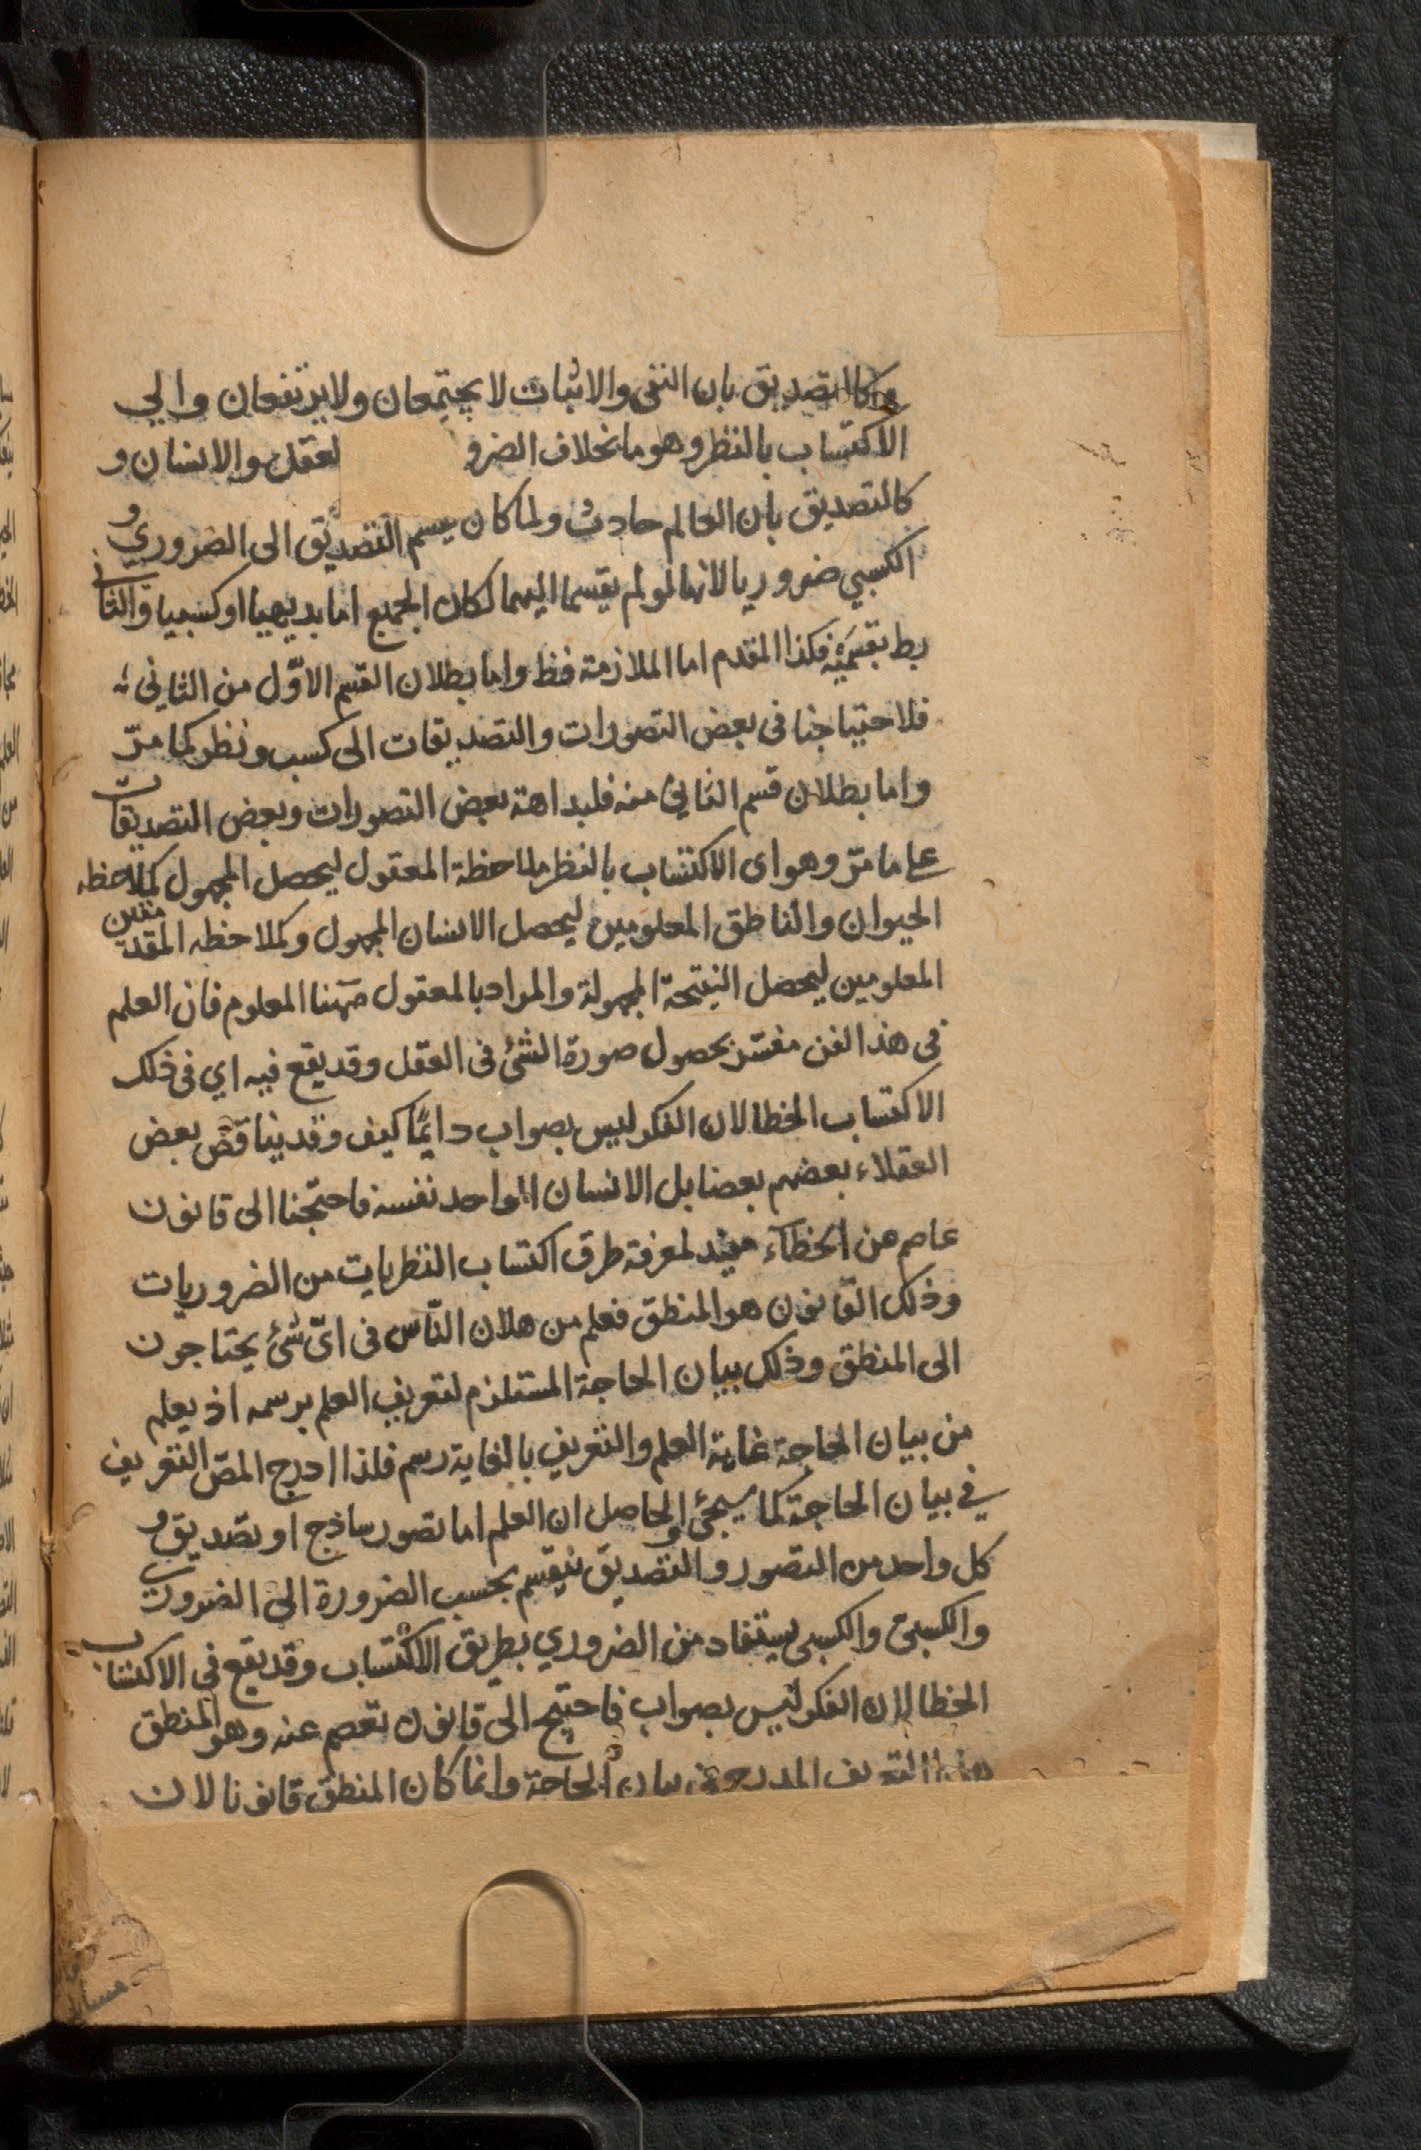 وكالتصديق بان النفى والاثبات لا يجتمعان ولا يرتفعان والي
الاكتساب بالنظر وهو ما بخلاف الضرو لعقل والانسان و
كالتصديق بان العالم حادث ولما كان يسم التصديق الى الضروري و
الكسبي ضروريا لانهما لو لم يقسما اليهما لكان الجميع اما بديهيا او كسبيا والثانى
بط بقسميه فكذا المقدم اما الملازمة فظ واما بطلان القسم الاوّل من الثانى
فلاحتياجنا فى بعض التصورات والتصديقات الى كسب ونظر كما مرّ
واما بطلان قسم الثاني منه فلبداهة بعض التصورات وبعض التصديقات
على ما مرّ وهو اى الاكتساب بالنظر ملاحظة المعقول ليحصل المجهول كملاحظه
الحيوان والناطق المعلومين ليحصل الانسان المجهول وكملاحظه المقدمتين
المعلومين ليحصل النتيحة المجهولة والمراد بالمعقول ههنا المعلوم فان العلم
فى هذا الفن مفسّر بحصول صورة الشئ فى العقل وقد يقع فيه اي فى ذلك
الاكتساب الخطا لان الفكر ليس بصواب دايمًا كيف وقد يناقض بعض
العقلاء بعضهم بعضا بل الانسان الواحد نفسه فاحتجنا الى قانون
عاصم عن الخطاء مفيد لمعرفة طرق اكتساب النظريات من الضروريات
وذلك القانون هو المنطق فعلم من هذا ان النّاس فى اىّ شئ يحتاجون
الى المنطق وذلك بيان الحاجة المستلزم لتعريف العلم برسمه اذ يعلم
من بيان الحاجة غاية العلم والتعريف بالغاية رسم فلذا ادرج المصّ التعريف
في بيان الحاجة كما سيجئ والحاصل ان العلم اما تصور ساذج او تصديق و
كل واحد من التصور والتصديق ينقسم بحسب الضرورة الى الضرورى
والكسبى والكسبى يستفاد من الضروري بطريق الاكتساب وقد يقع فى الاكتساب
الخطا لان الفكر ليس بصواب فاحتيج الى قانون تعصم عنه وهو المنطق
هذا التعريف المدرج فى بيان الحاجة وانما كان المنطق قانونا لان